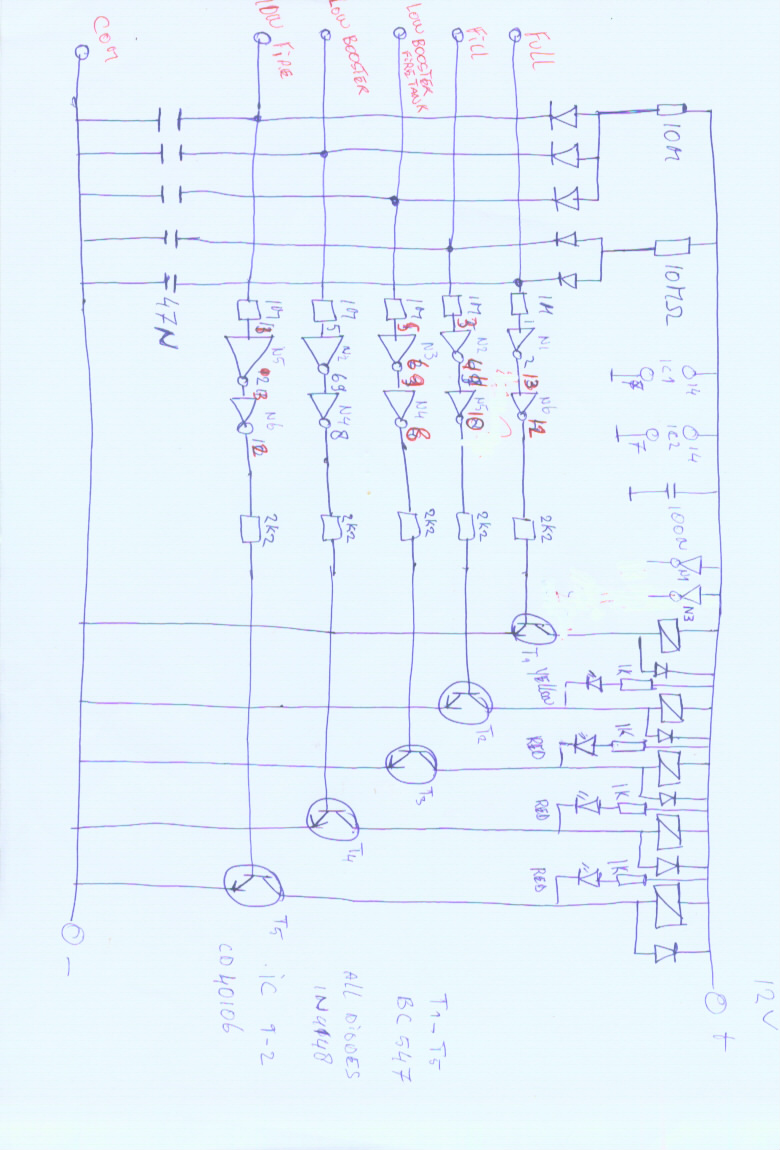 COM
LOW FIRE
LOW BOOSTER
LOW BOOSTER
FIRE TANK
FILL
FULL
10M
10MΩ
47N
1M
1M
1M
1M
1M
N5
N2
N3
N2
N1
N6
N4
N4
N5
N6
13
5
5
3
1
12
6
6
4
2
13
9
9
11
13
12
8
8
10
12
IC1
14
7
IC2
14
7
100N
N1
N3
2K2
2K2
2K2
2K2
2K2
T1
T2
T3
T4
T5
YELLOW
RED
RED
RED
1K
1K
1K
1K
12V
+
-
T1-T5
BC547
ALL DIODES
1N4148
IC 1-2
CD40106